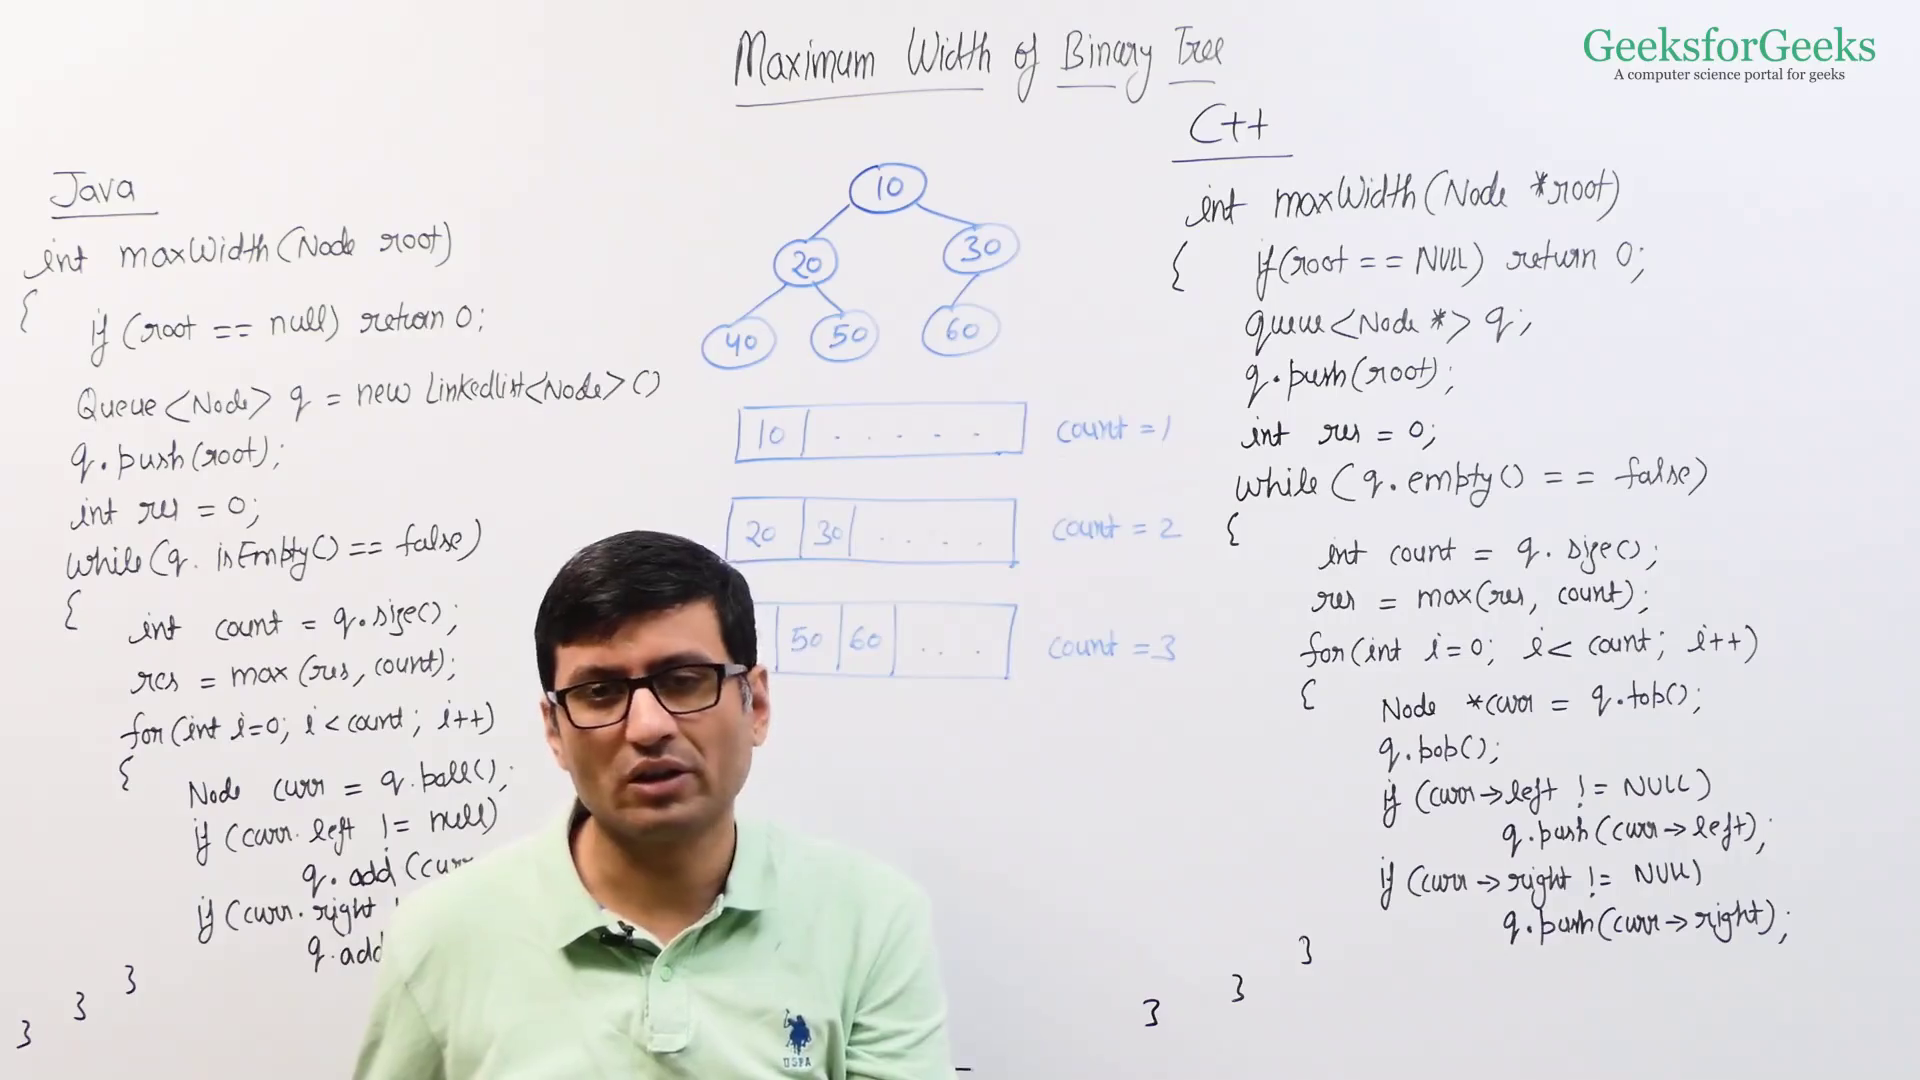 GeeksforGeeks
A computer science portal for geeks
Maximum Width of Binary Tree
Java
int maxWidth(Node root)
{
if (root == null) return 0;
Queue<Node> q = new LinkedList<Node>()
q.push(root);
int res = 0;
while(q. isEmpty() == false)
{
int count = q.size();
res = max (res, count);
for(int i=0; i < count; i++)
{
Node curr = q.poll();
if (curr. left != null)
q. add (curr
if (curr. right !
q.add
}
}
}
10
20
30
40
50
60
10 . . . . .
count = 1
20 30 . . . .
count = 2
50 60 . . .
count = 3
C++
int maxWidth(Node *root)
{
if(root == NULL) return 0;
queue<Node *> q;
q.push(root);
int res = 0;
while (q. empty() == false)
{
int count = q. size();
res = max(res, count);
for(int i=0; i< count; i++)
{
Node *curr = q.top();
q.pop();
if (curr→left != NULL)
q.push(curr→left);
if (curr→right != NULL)
q.push(curr→right);
}
}
}
USPA